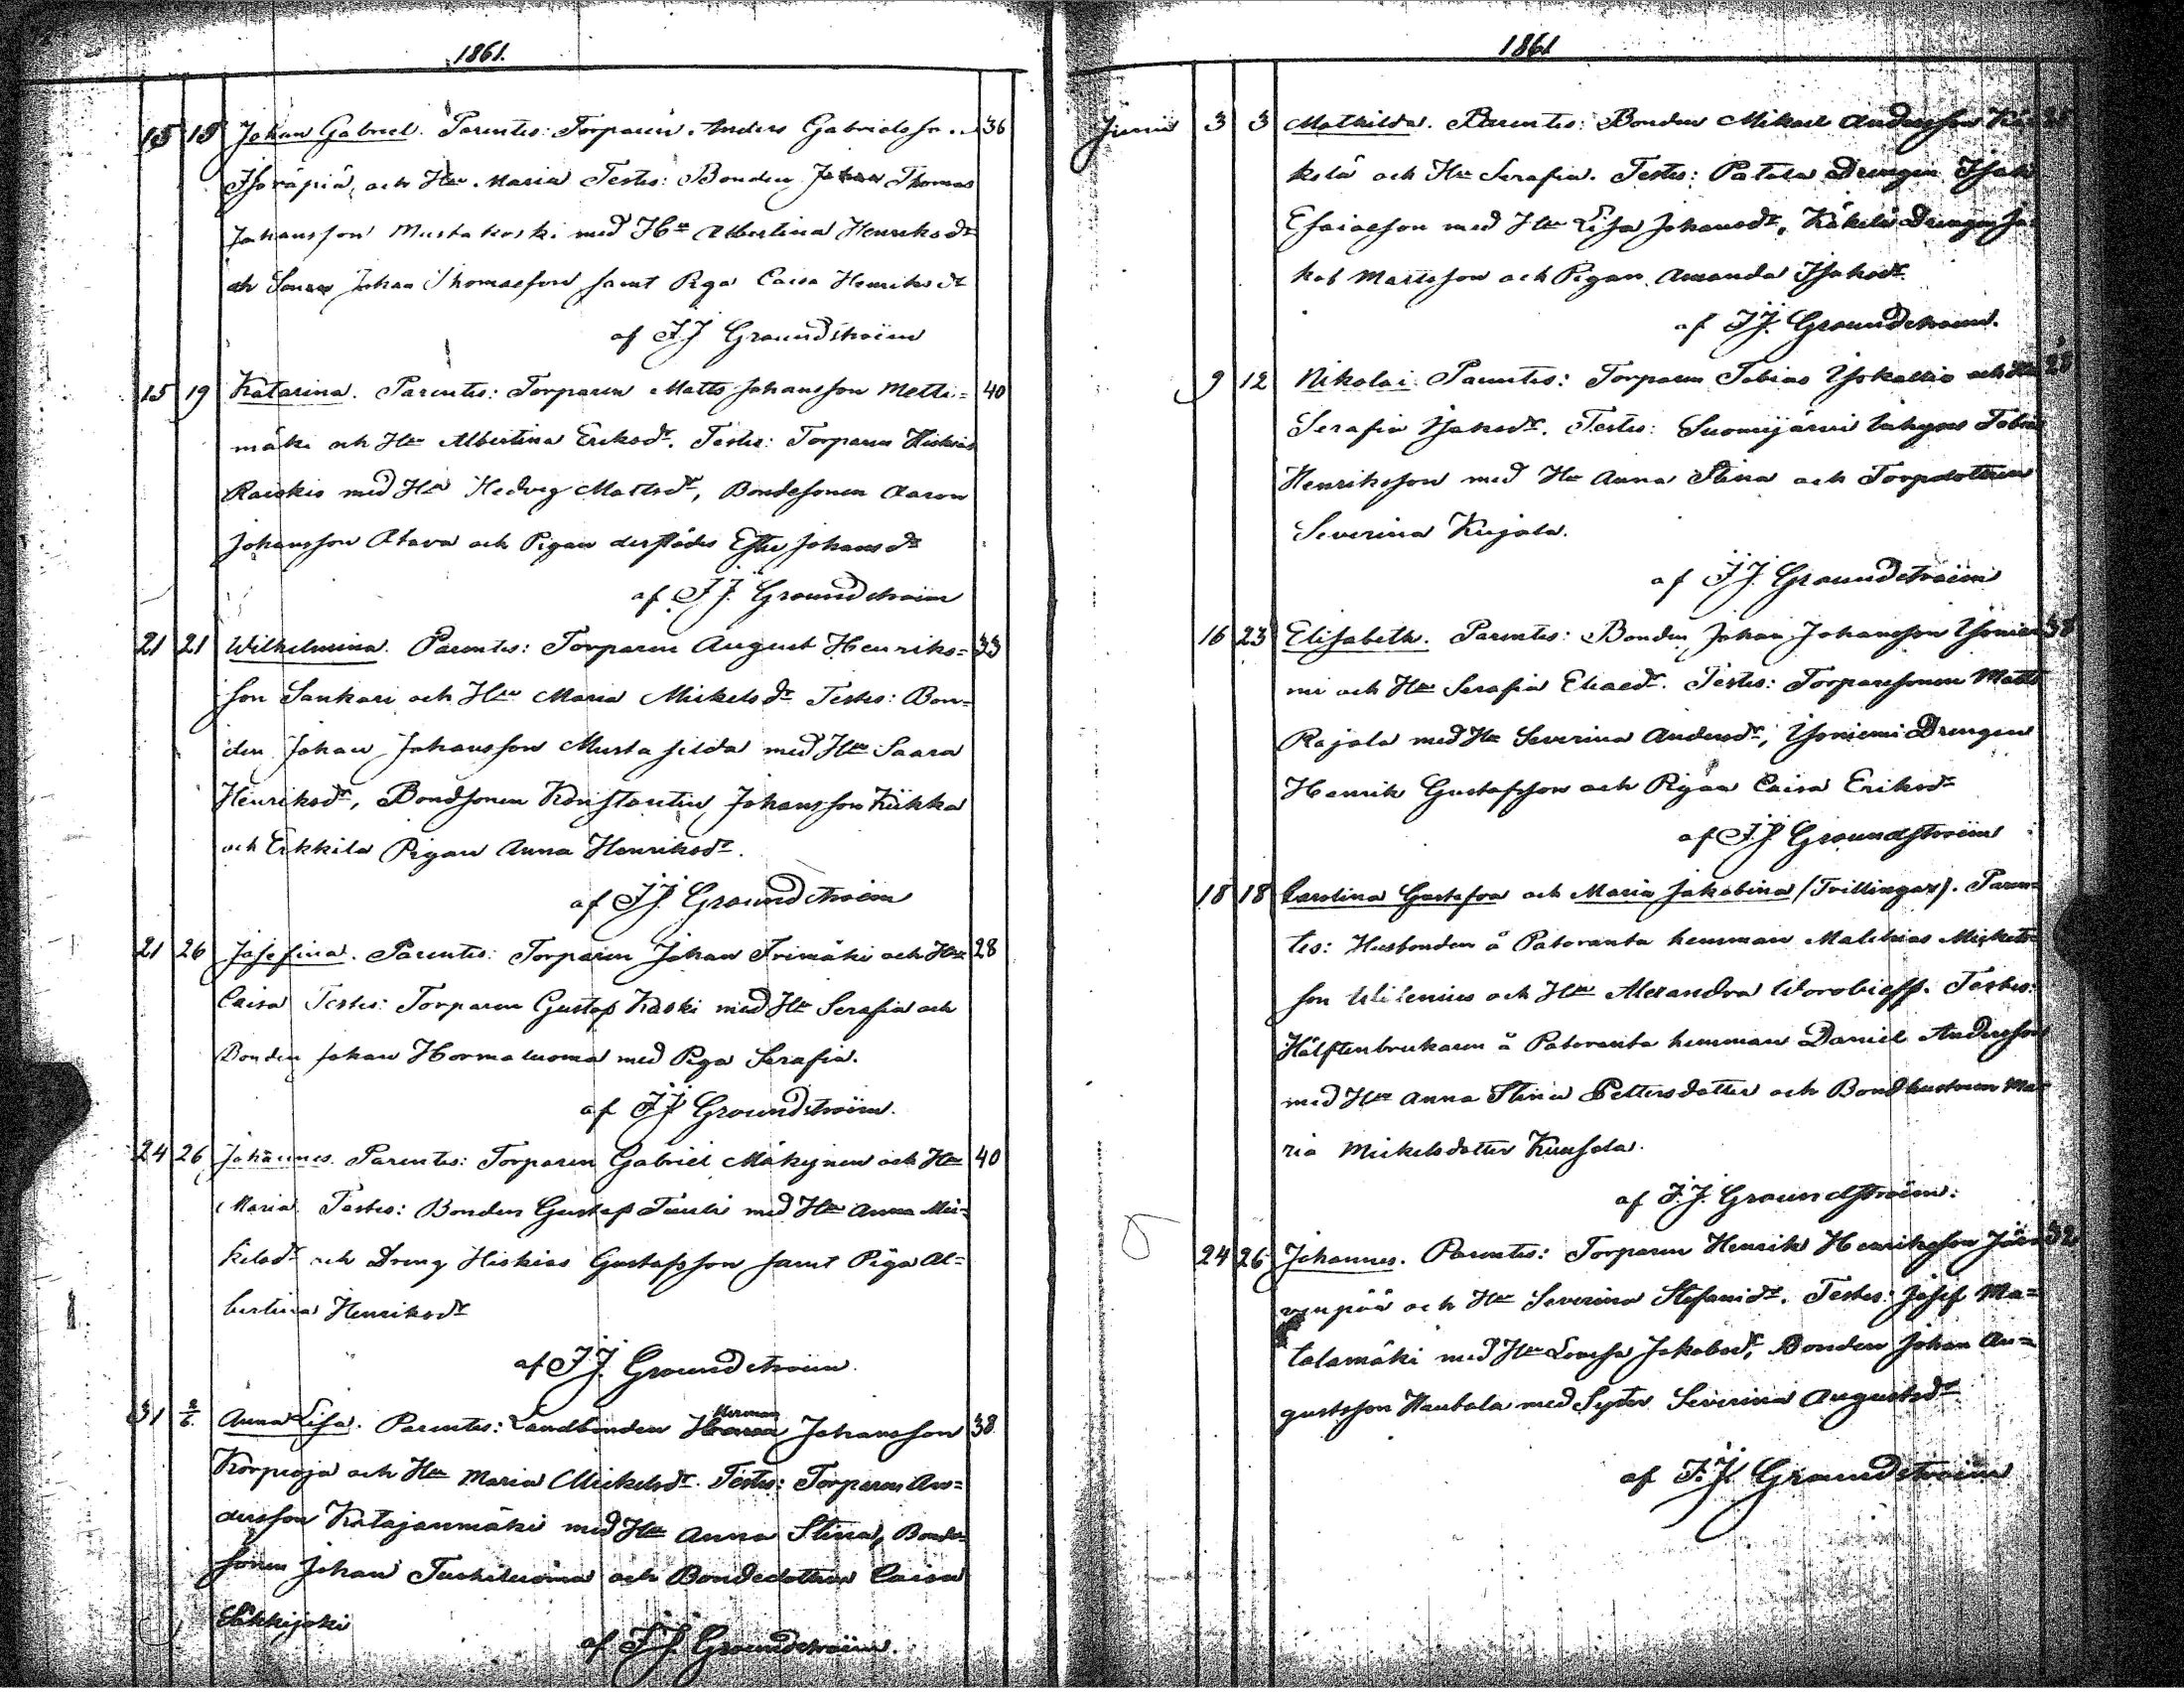 1861.
15 15 Johan Gabriel. Parentes: Torparen Anders Gabrielsson 36
och Hu. Maria Testes: Bonden Thomas
Johansson Mustakoski med Hu Albertina Henriksdr
och Sonen Johan Thomasson samt Piga Caisa Henriksdr
af J.J Groundstroëm
15 19 Katarina. Parentes: Torparen Matts Johansson Metti= 40
mäki och Hu Albertina Eriksdr. Testes: Torparen Hiskias
Raiskio med Hu Hedvig Mattsdr, Bondesonen Aaron
Johansson Atava och Pigan derstädes Ester Johansdr
af J.J. Groundstroëm
21 21 Wilhelmina. Parentes: Torparen August Henriks= 33
son Sankari och Hu Maria Mickelsdr Testes: Bon=
den Johan Johansson Mustasilda med Hu Saara
Henriksdr, Bondsonen Konstantin Johansson Kiikka
och Erkkila Pigan Anna Henriksdr.
af J.J. Groundstroëm
21 26 Josefina. Parentes: Torparen Johan och Hu 28
Caisa Testes: Torparen Gustaf Kaski med Hu Serafia och
Bonden Johan Hormaluoma med Piga Serafia.
af J.J Groundstroëm.
24 26 Johannes. Parentes: Torparen Gabriel Mäkynen och Hu 40
Maria. Testes: Bonden Gustaf med Hu Anna Mic=
kelsdr och Dreng Hiskias Gustafsson samt Piga Al=
bertina Henriksdr
af J.J. Groundstroëm.
31 2/6. Anna Lisa. Parentes: Landbonden Herman Johansson 38
Korpioja och Hu Maria Mickelsdr. Testes: Torparen An=
dersson Katajanmäki med Hu Anna Stina, Bonde=
sonen Johan Tuohiluoma och Bondedottren Caisa
af J.J. Groundstroëm.
1861
Junii 3 3 Mathilda. Parentes: Bonden Mikael Andersson Kä=
kelä och Hu Serafia. Testes: Patala Drengen Isak
Esaiasson med Hu Lisa Johansdr, Käkelä Drengen Ja=
kob Mattsson och Pigan Amanda Isaksdr.
af J.J. Groundstroëm.
9 12 Nikolai. Parentes: Torparen Tobias Ysokallio och Hu 28
Serafia Isaksdr. Testes: Suomijärvi Tobias
Henriksson med Hu Anna Stina och Torpdottren
Severina Kujala.
af J.J. Groundstroëm
16 23 Elisabeth. Parentes: Bonden Johan Johansson Ysonie= 38
mi och Hu Serafia Eliaedr. Testes: Torparesonen Matts
Rajala med Hu Severina Andersdr, Ysoniemi Drengen
Henrik Gustafsson och Pigan Caisa Eriksdr
af J.J Groundstroëm
18 18 Carolina Gustafva och Maria Jakobina (Tvillingar). Paren=
tes: Husbonden å Patoranta hemman Malakias Mickels=
son Wilenius och Hu Alexandra Worobieff. Testes:
Hälftenbrukaren å Patoranta hemman Daniel Andersson
med Hu Anna Stina Pettersdotter och Bondhustrun Ma=
ria Mickelsdotter Kuusela.
af J.J. Groundstroëm.
24 26 Johannes. Parentes: Torparen Henrik Henriksson Jär= 32
venpää och Hu Severina Stefanidr. Testes: Josef Ma=
talamäki med Hu Lovisa Jakobsdr, Bonden Johan Au=
gustsson Hautala med Syster Severina Augustsdr
af J.J. Groundstroëm